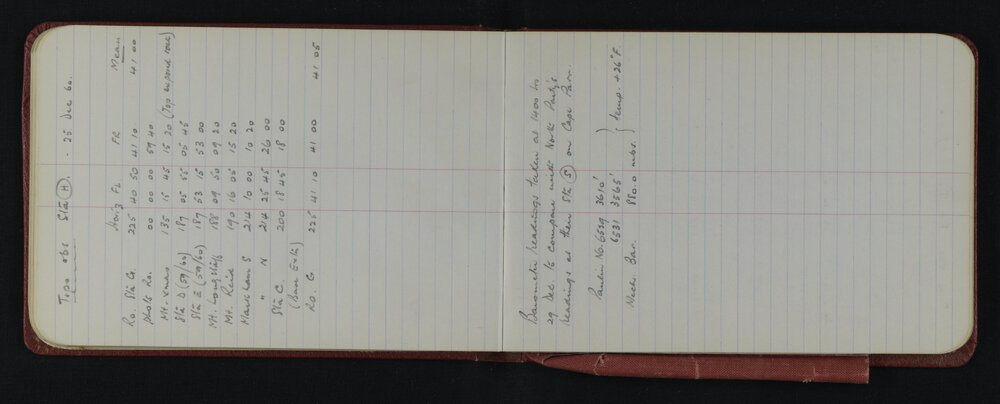 Topo obs Stn (H). 25 Dec 60.
Horiz FL FR Mean
Ro. Stn G. 225 40 50 41 10 41 00
photo Ro. 00 00 00 59 40
Mt. Xmas 135 15 45 15 20 (Top exposed rock)
Stn D (59/60) 187 05 55 05 45
Stn E (59/60) 187 53 15 53 00
Mt. Longstaff 188 09 50 09 20
Mt. Reid 190 16 05 15 20
Markham S 214 10 00 10 20
" N 214 25 45 26 00
Stn C. 200 18 45 18 00
(Base Extn)
Ro. G 225 41 10 41 00 41 05
Barometer readings taken at 1400 hrs
29 Dec to compare with North Party's
readings at their Stn (5) on Cape Parr.
Paulin No. 6529 3610'
6531 3565' } temp. +26°F.
Mech. Bar. 880.0 mbs.